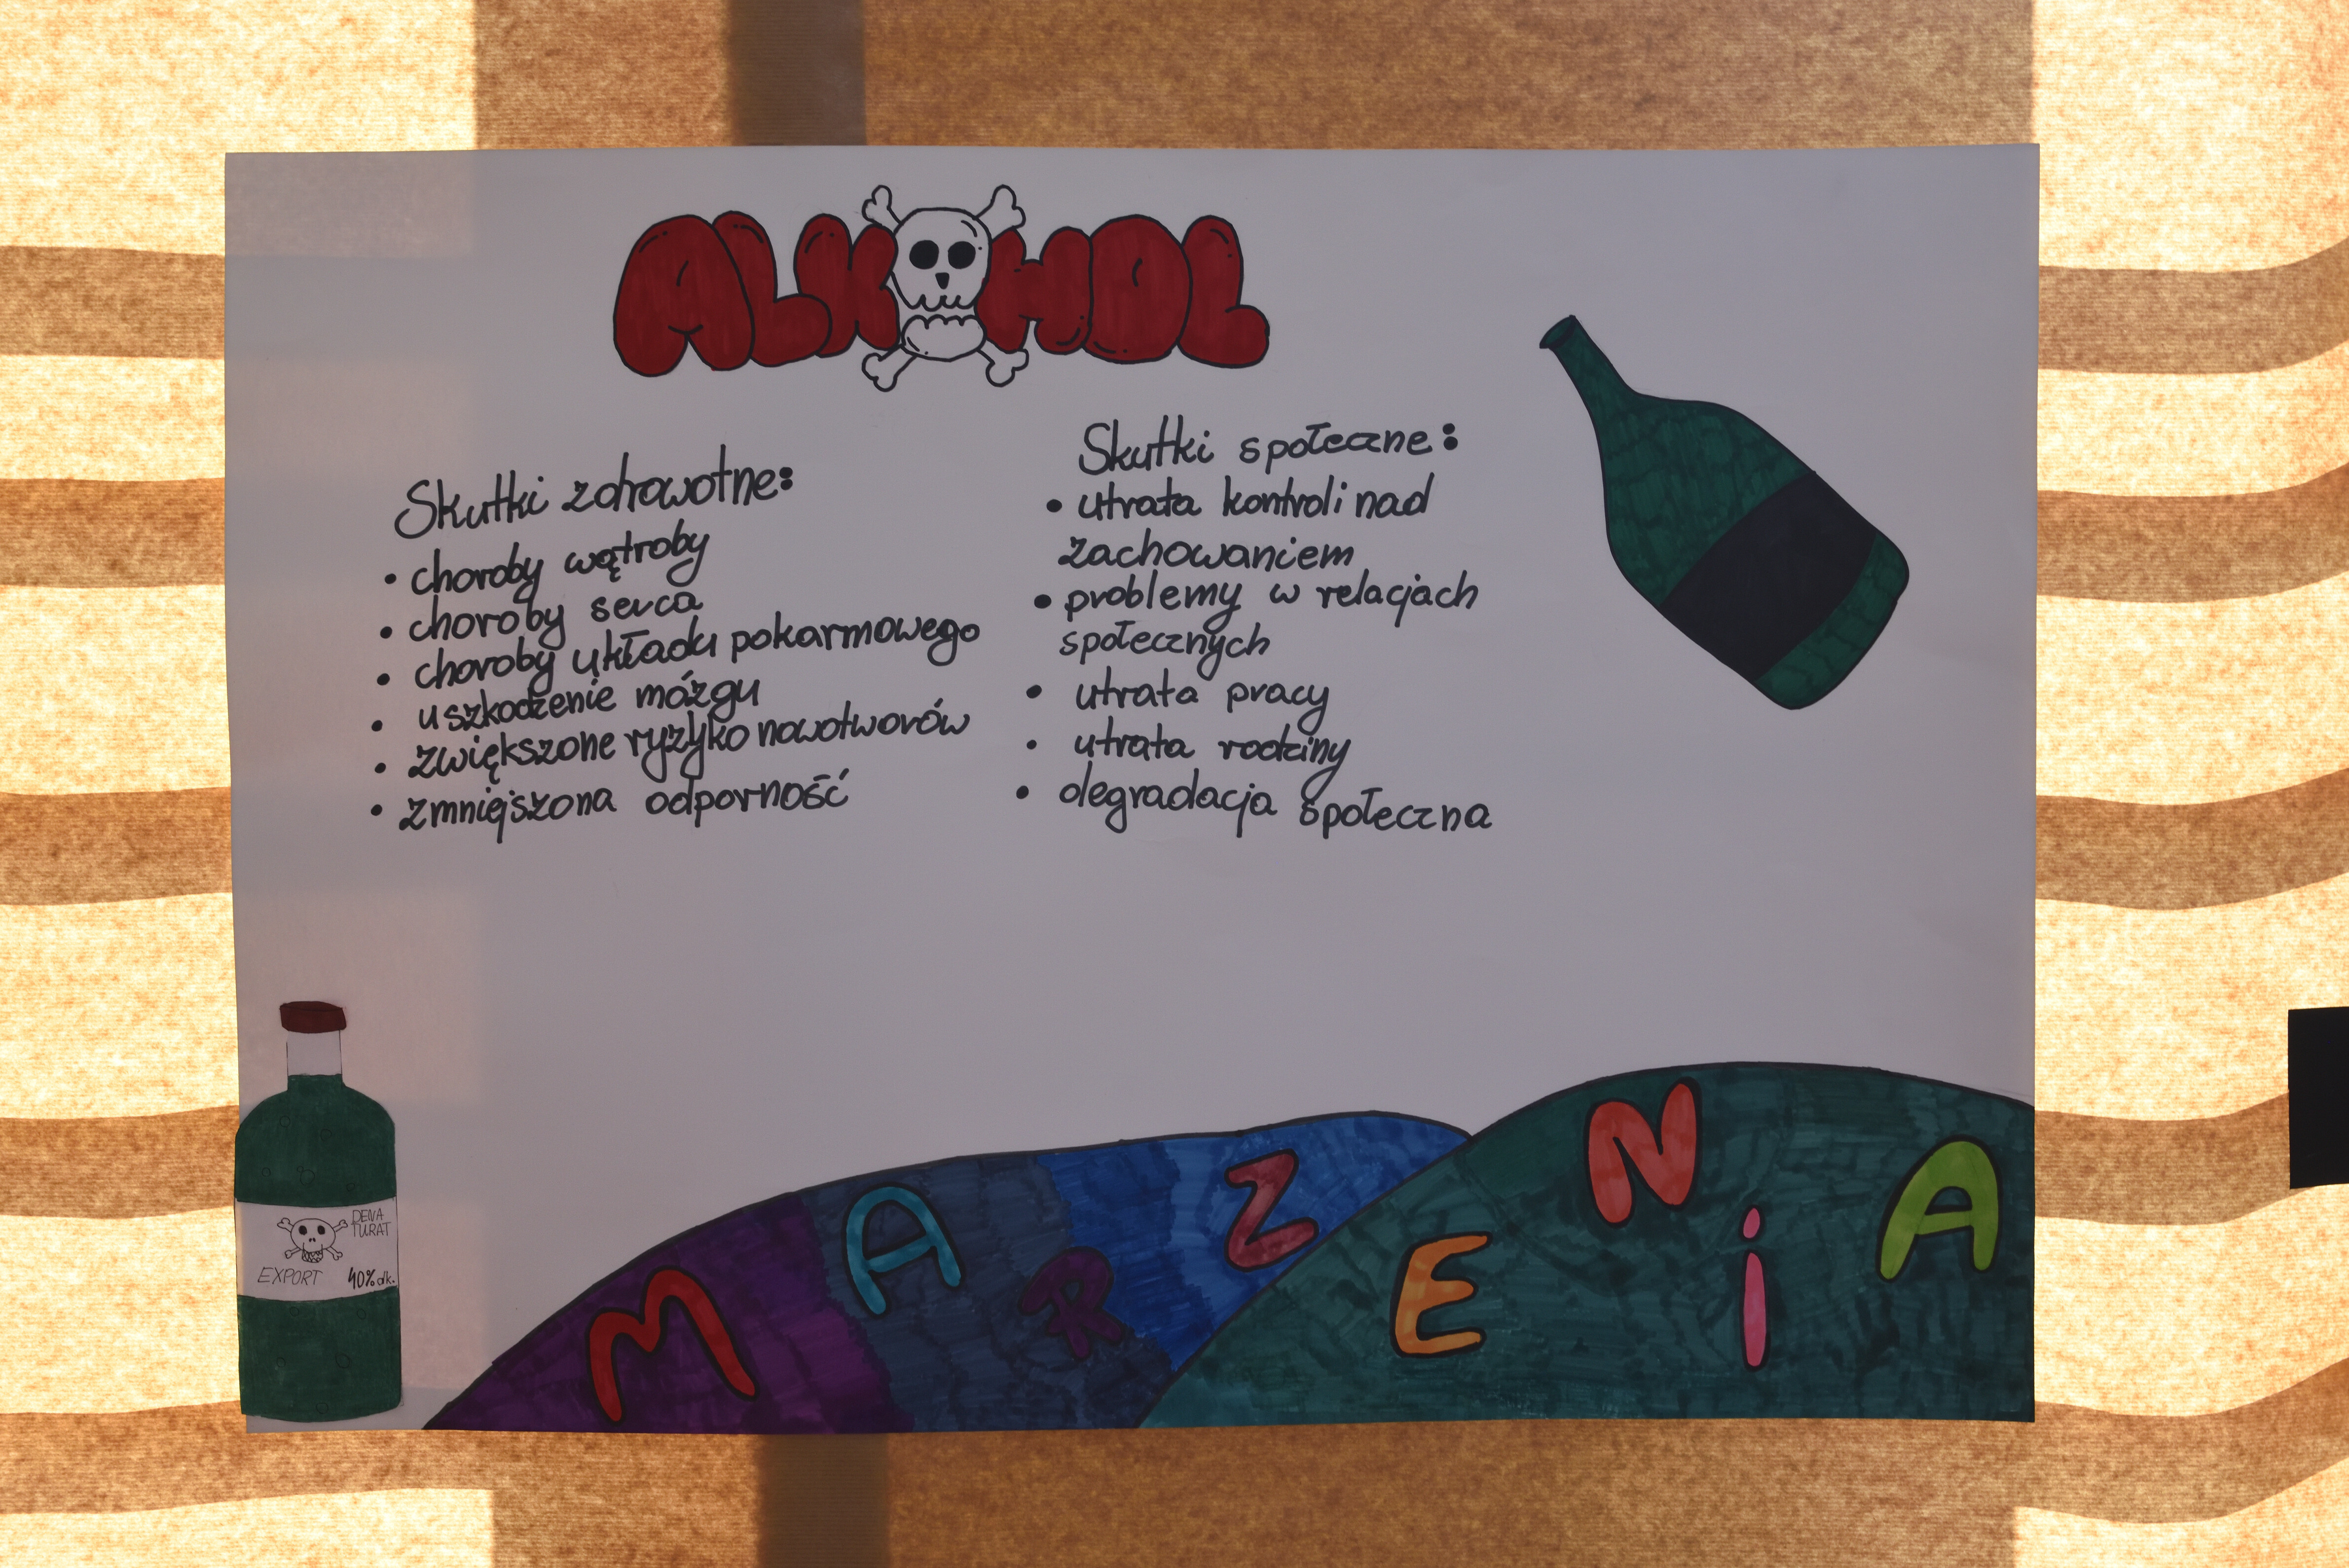 ALKOHOL
Skutki zdrowotne:
• choroby wątroby
• choroby serca
• choroby układu pokarmowego
• uszkodzenie mózgu
• zwiększone ryzyko nowotworów
• zmniejszona odporność
Skutki społeczne:
• utrata kontroli nad
zachowaniem
• problemy w relacjach
społecznych
• utrata pracy
• utrata rodziny
• degradacja społeczna
DENA
TURAT
EXPORT 40% alk.
MARZENiA